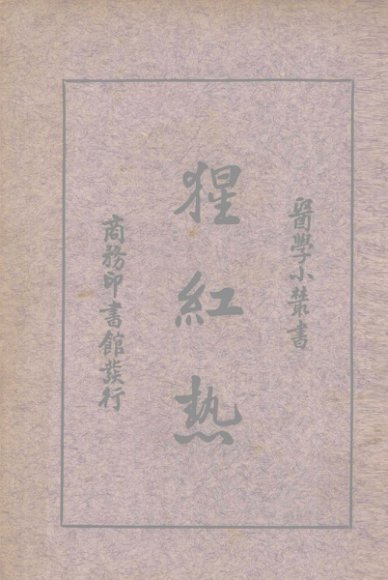 醫學小叢書
猩紅热
商務印書館發行